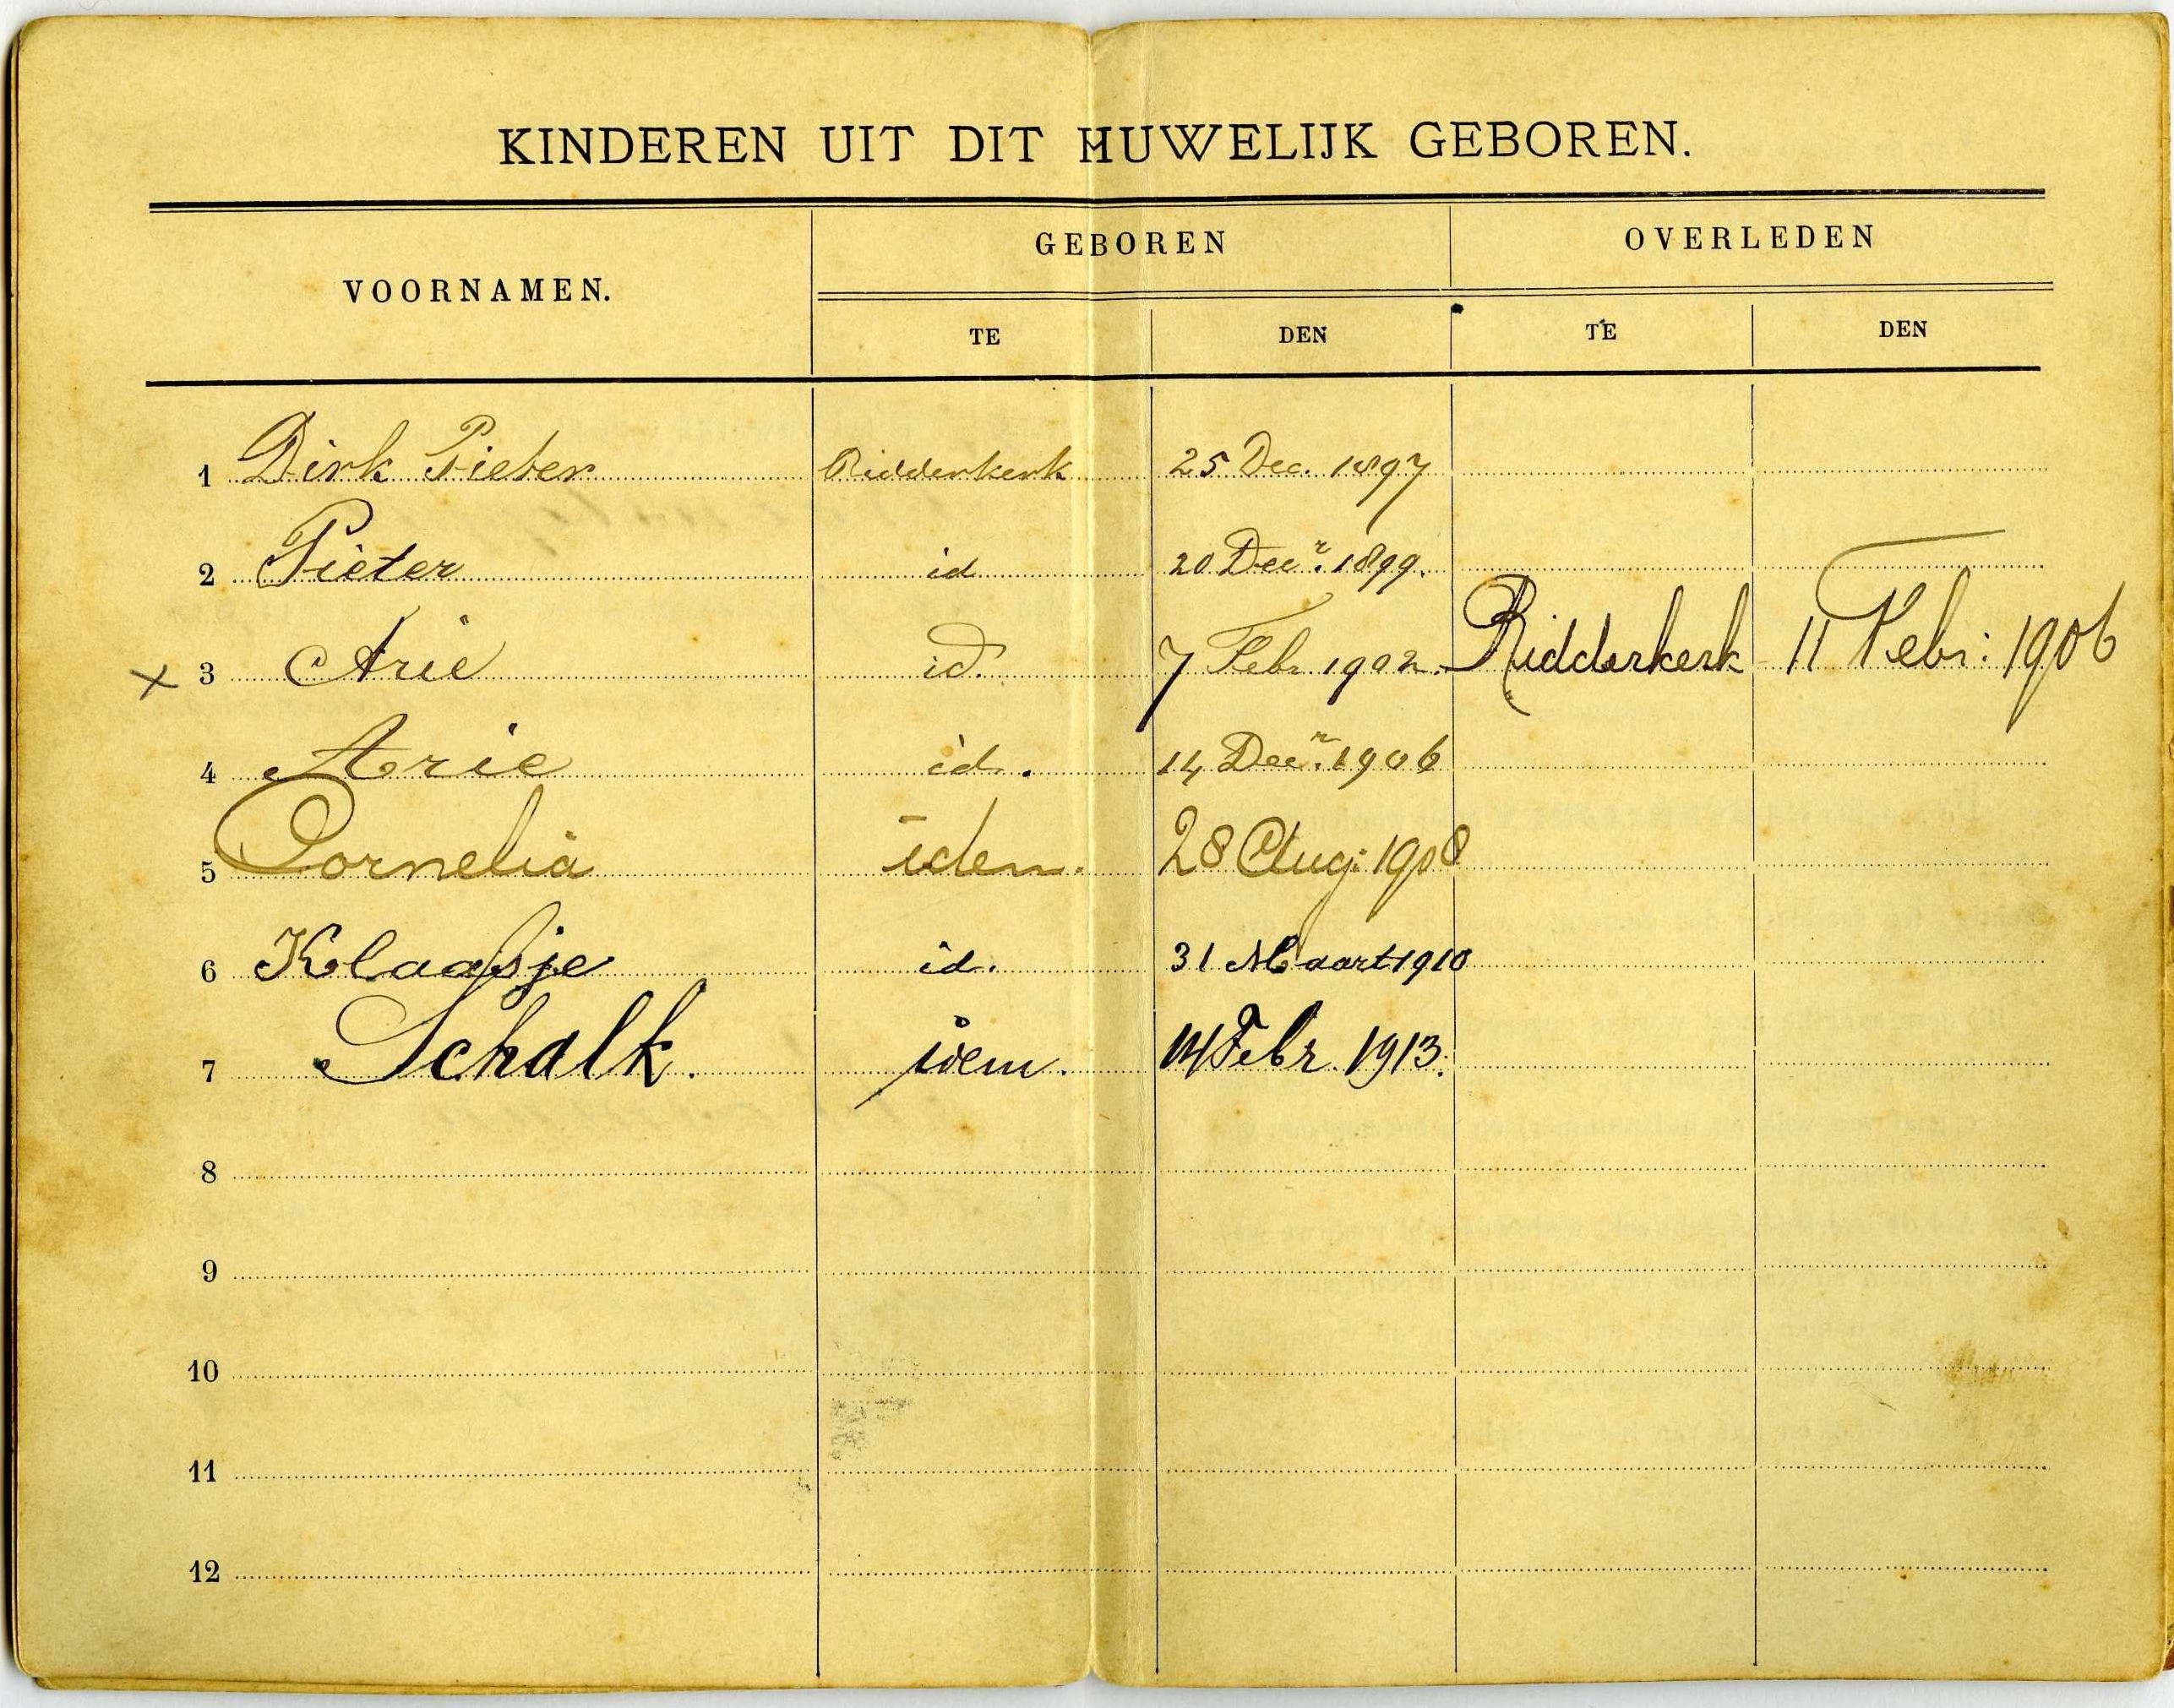 KINDEREN UIT DIT HUWELIJK GEBOREN.
VOORNAMEN. GEBOREN OVERLEDEN
TE DEN TE DEN
1 Dirk Pieter Ridderkerk 25 Dec. 1897
2 Pieter id 20 Decr. 1899.
x 3 Arie id. 7 Febr 1902. Ridderkerk 11 Febr: 1906
4 Arie id. 14 Decr. 1906
5 Cornelia idem. 28 Aug: 1908
6 Klaasje id. 31 Maart 1910
7 Schalk. idem. 14 Febr. 1913.
8
9
10
11
12